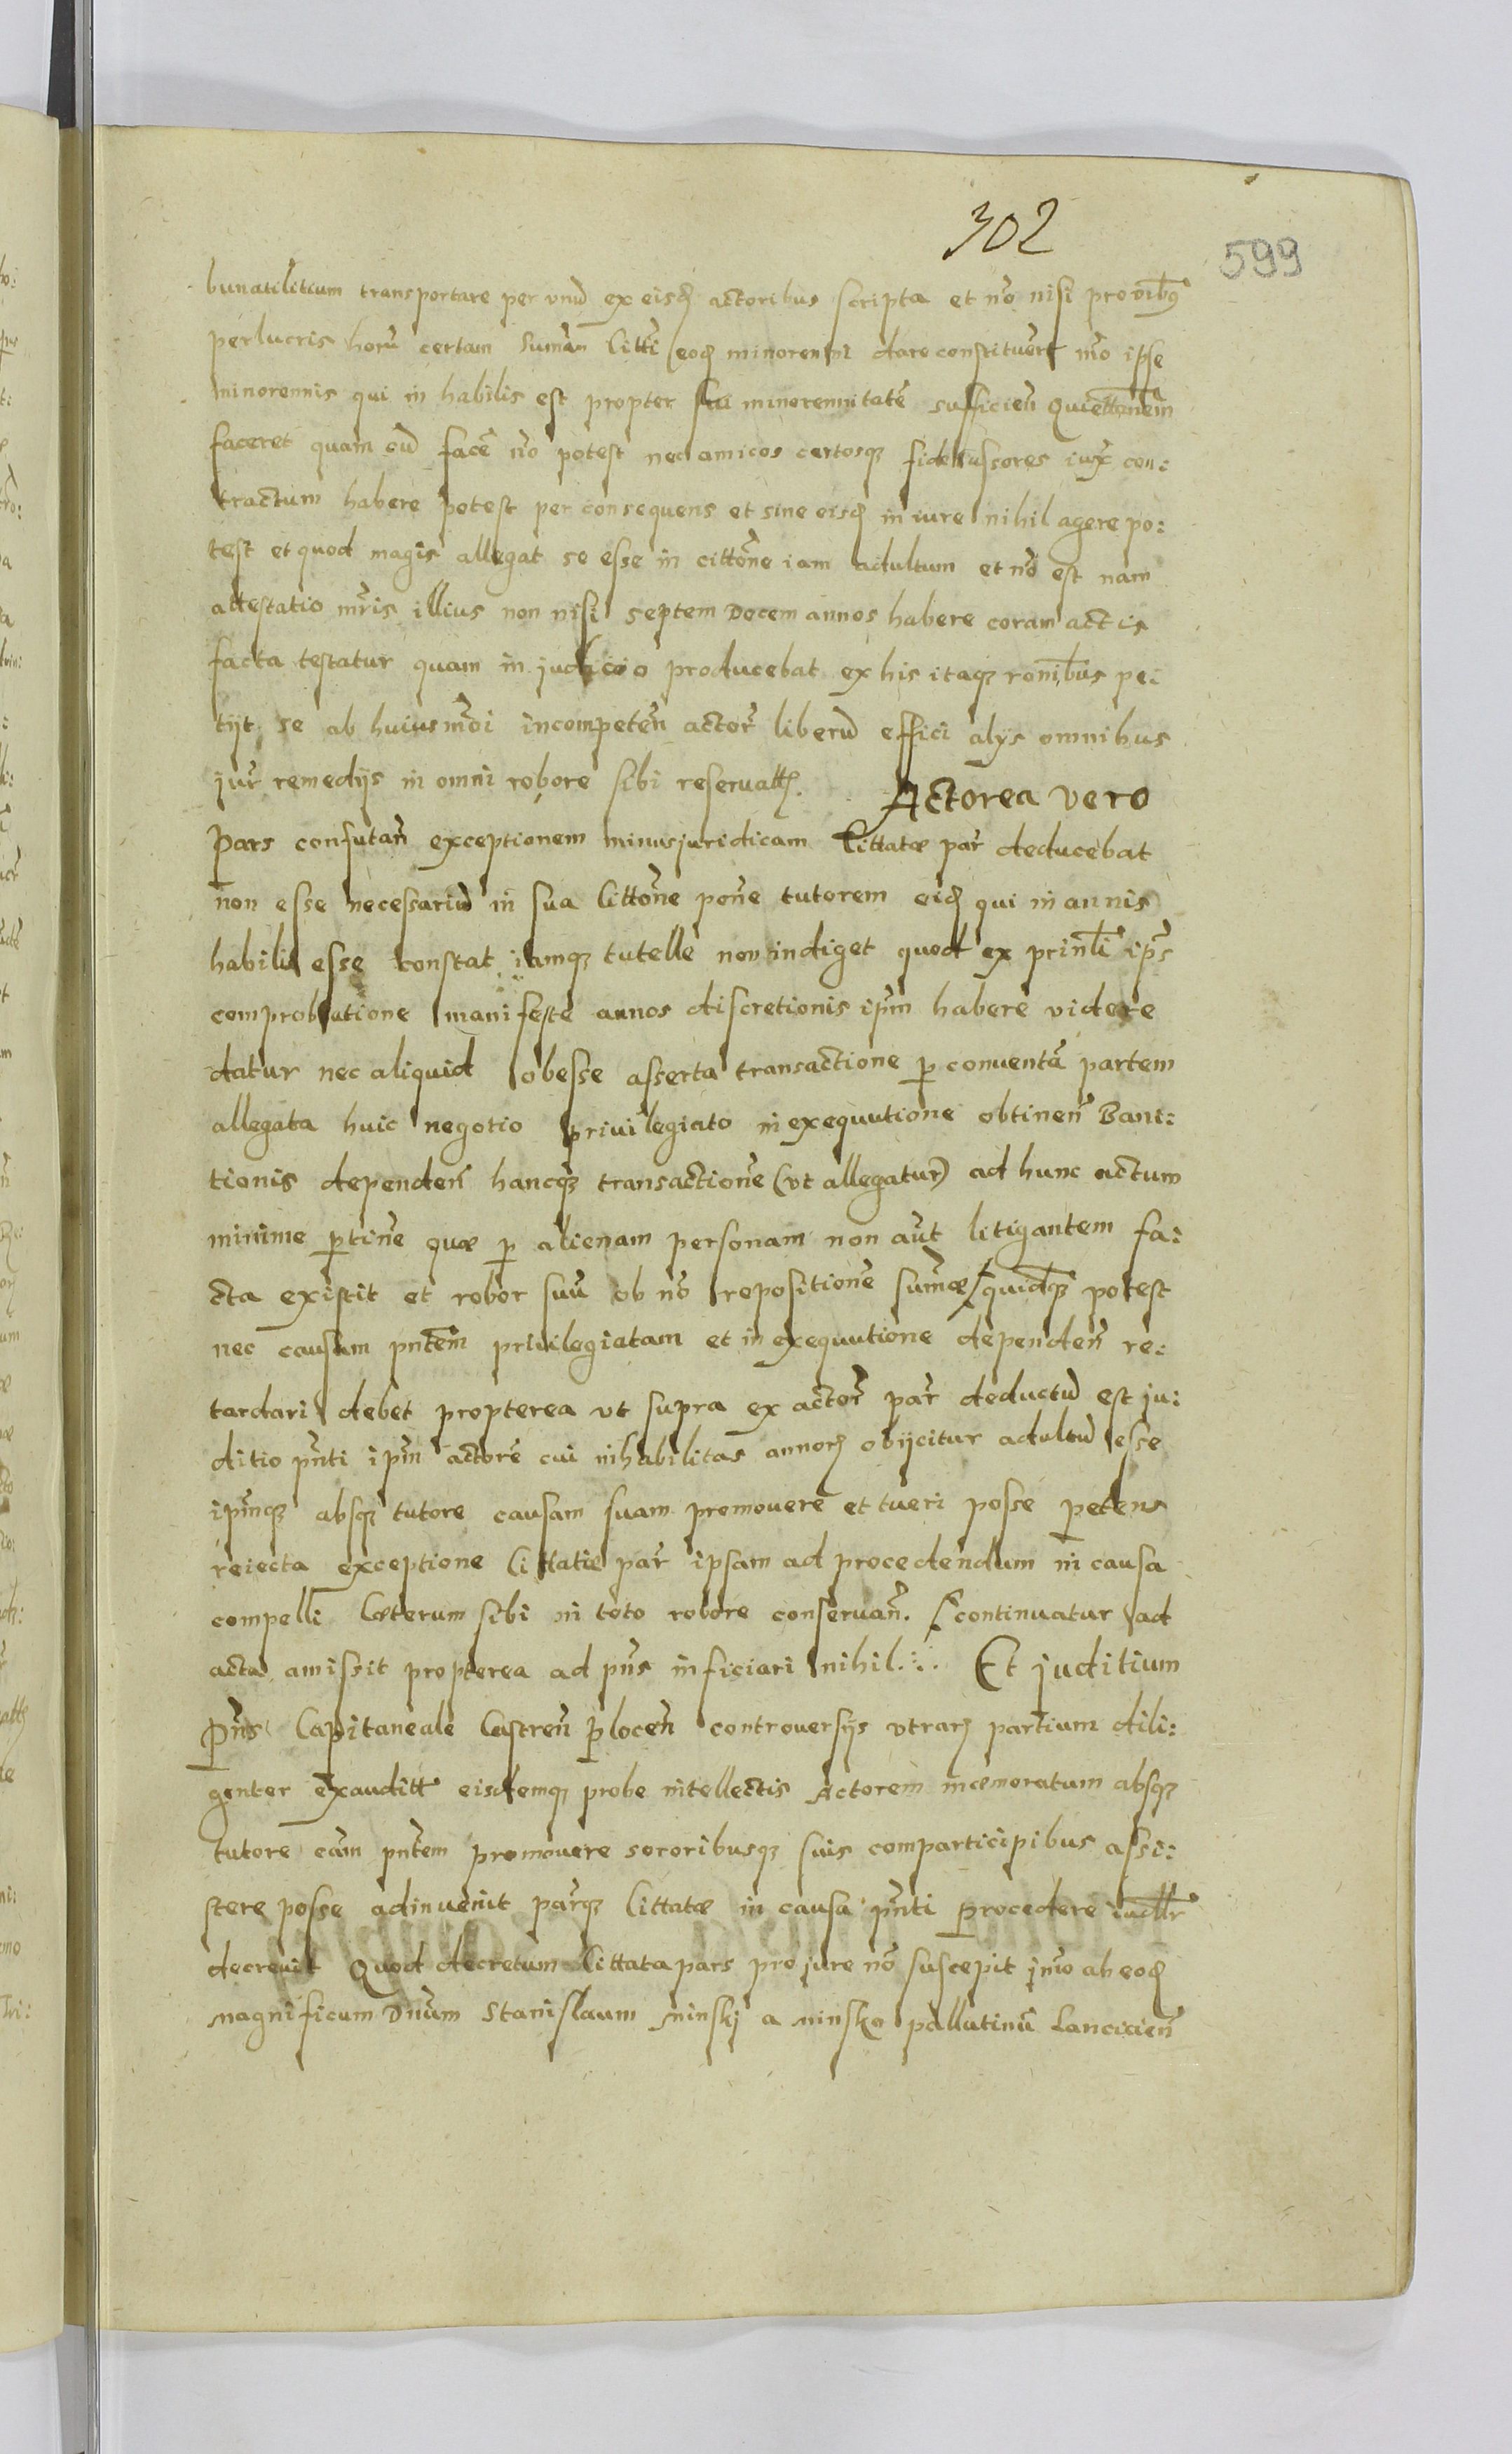 302
599
bunatilitium transportare per vnū ex eisd actoribus scripta et nō nisi pro
perlucris horū certam sum̄am litti eod minorenni dare constituert mō ipse
minorennis qui in habilis est propter suā minorennitatē sufficien̄ Quiettōnem
faceret quam cū facē nō potest nec amicos certosq fideiussores iux con:
tractum habere potest per consequens et sine eisd in iure nihil agere po:
test et quod magis allegat se esse in cittōne iam adultum et nō est nam
attestatio mr̄is illius non nisi septem Decem annos habere coram actis
facta testatur quam in judicio producebat ex his itaq rōnibus pe:
tijt se ab huiusmōi incompetēn actor̄ liberū effici alys omnibus
jur̄ remedijs in omni robore sibi reseruatt. Actorea vero
Pars confutan̄ exceptionem minusjuridicam Cittatæ par̄ deducebat
non esse necessariū in sua Cittōne pone tutorem eid qui in annis
habilis esse constat iamq tutelle non indiget quod ex prin̄li ip̄s
comprobatione manifeste annos discretionis ip̄m habere videre
datur nec aliquid obesse asserta transactione p conuentā partem
allegata huic negotio priuilegiato in exequutione obtinen̄ Bani:
tionis dependen̄ hancq transactionē (vt allegatur) ad hunc actum
minime ptinē quæ p alienam personam non aūt litigantem fa:
cta existit et robor suū ob nō repositionē sum̄æ quidq potest
nec causam pn̄tem priuilegiatam et in exequutione dependen̄ re:
tardari debet propterea vt supra ex actor̄ par̄ deductū est ju:
ditio pn̄ti ip̄m actorē cui inhabilitas annor obijcitur adultū esse
ip̄mq absq tutore causam suam promouere et tueri posse petens
reiecta exceptione Cittatæ par̄ ipsam ad procedendum in causa
compelli Cæterum sibi in toto robore conseruan̄. continuatur ad
acta amissit propterea ad pn̄s inficiari nihil. Et juditium
Pn̄s Capitaneale Castren̄ Plocen̄ controuersijs vtrar partium dili:
genter exauditt eisdemq probe intellectis Actorem memoratum absq
tutore cām pn̄tem promouere sororibusq suis comparticipibus assi:
stere posse adinuenit parq̄ Cittatæ in causa pn̄ti procedere iudllr
decreuit Quod decretum Cittata pars pro jure nō suscepit jmo ab eod
Magnificum Dn̄um Stanislaum Minskj a Minsko pallatinū Lancicien̄